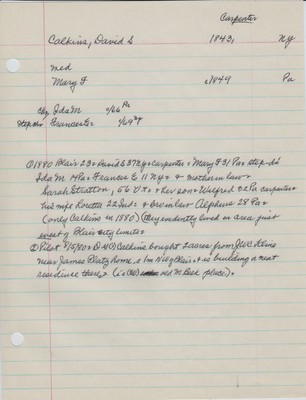 Carpenter
Calkins, David S 1843, NY
med
Mary F c1849 Pa
Ida M 1/66 Pa
Step Frances E 1/69
① 1880 Blair 23 = David S 37 NY = carpenter = Mary F 31 Pa = step-d's
Ida M 14 Pa = Frances E 11 NY = & mother in law =
Sarah Stratton, 56 VT = & her son = Wilfred 22 Pa carpenter =
his wife Loretta 22 Ind = & bro in law Alpheus 28 Pa =
(only Calkins in 1880) (they evidently lived in area just
west of Blair city limits =
② Pilot 8/5/80 = D Calkins bought 2 acres from
near James Platz home, 2 1m NW of Blair, & is building a neat
residence there = (is Beek place) =